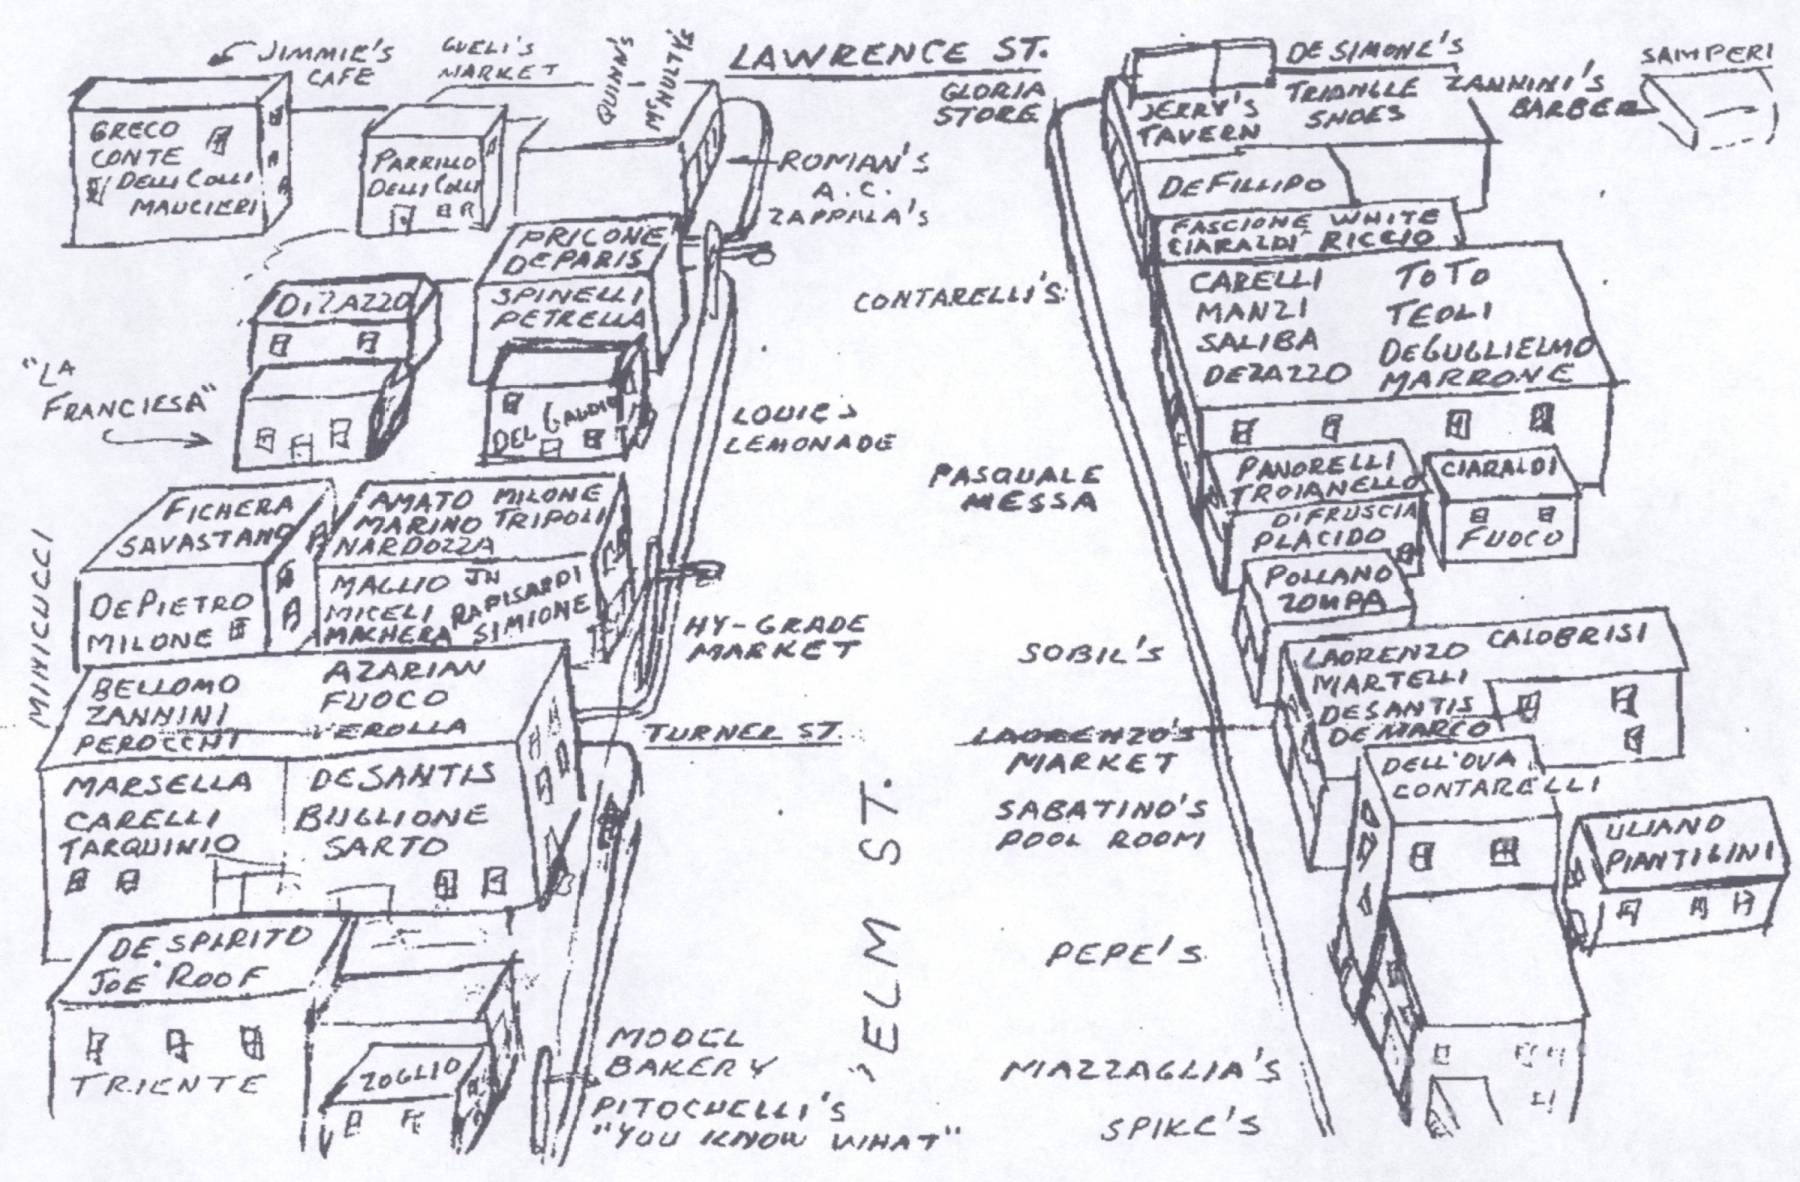 JIMMIE'S
CAFE
GUELI'S
MARKET
QUINN'S
McNULTY'S
LAWRENCE ST.
GLORIA
STORE
DE SIMONE'S
TRIANGLE
SHOES
ZANNINI'S
BARBER
SAMPERI
JERRY'S
TAVERN
GRECO
CONTE
DELLI COLLI
MAUCIERI
PARRILLO
DELLI COLLI
ROMAN'S
A.C.
ZAPPALA'S
DEFILLIPO
FASCIONE WHITE
CIARALDI RICCIO
PRICONE
DEPARIS
SPINELLI
PETRELLA
DIZAZZO
CONTARELLI'S
CARELLI
MANZI
SALIBA
DEZAZZO
TOTO
TEOLI
DEGUGLIELMO
MARRONE
"LA
FRANCIESA"
DEL GAUDIO
LOUIE'S
LEMONADE
PASQUALE
MESSA
PANORELLI
TROIANELLO
CIARALDI
DIFRUSCIA
PLACIDO
FUOCO
POLLANO
ZOMPA
FICHERA
SAVASTANO
AMATO MILONE
MARINO TRIPOLI
NARDOZZA
MINICUCCI
DEPIETRO
MILONE
MAGLIO JN
MICELI RAPISARDI
MACHERA SIMIONE
HY-GRADE
MARKET
SOBIL'S
LAORENZO CALOBRISI
MARTELLI
DESANTIS
DEMARCO
BELLOMO
ZANNINI
PEROCCHI
AZARIAN
FUOCO
VEROLLA
TURNER ST.
LAORENZO'S
MARKET
DELL'OVA
CONTARELLI
MARSELLA
CARELLI
TARQUINIO
DESANTIS
BUGLIONE
SARTO
ELM ST.
SABATINO'S
POOL ROOM
ULIANO
PIANTIGINI
DE SPIRITO
JOE ROOF
TRIENTE
PEPE'S
ZOGLIO
MODEL
BAKERY
PITOCHELLI'S
"YOU KNOW WHAT"
MAZZAGLIA'S
SPIKE'S